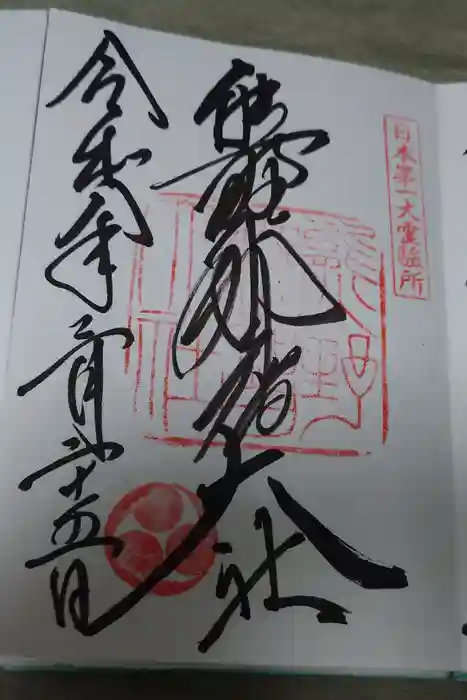 日本第一大霊験所
熊野那智大社
令和 年 月弐十五日